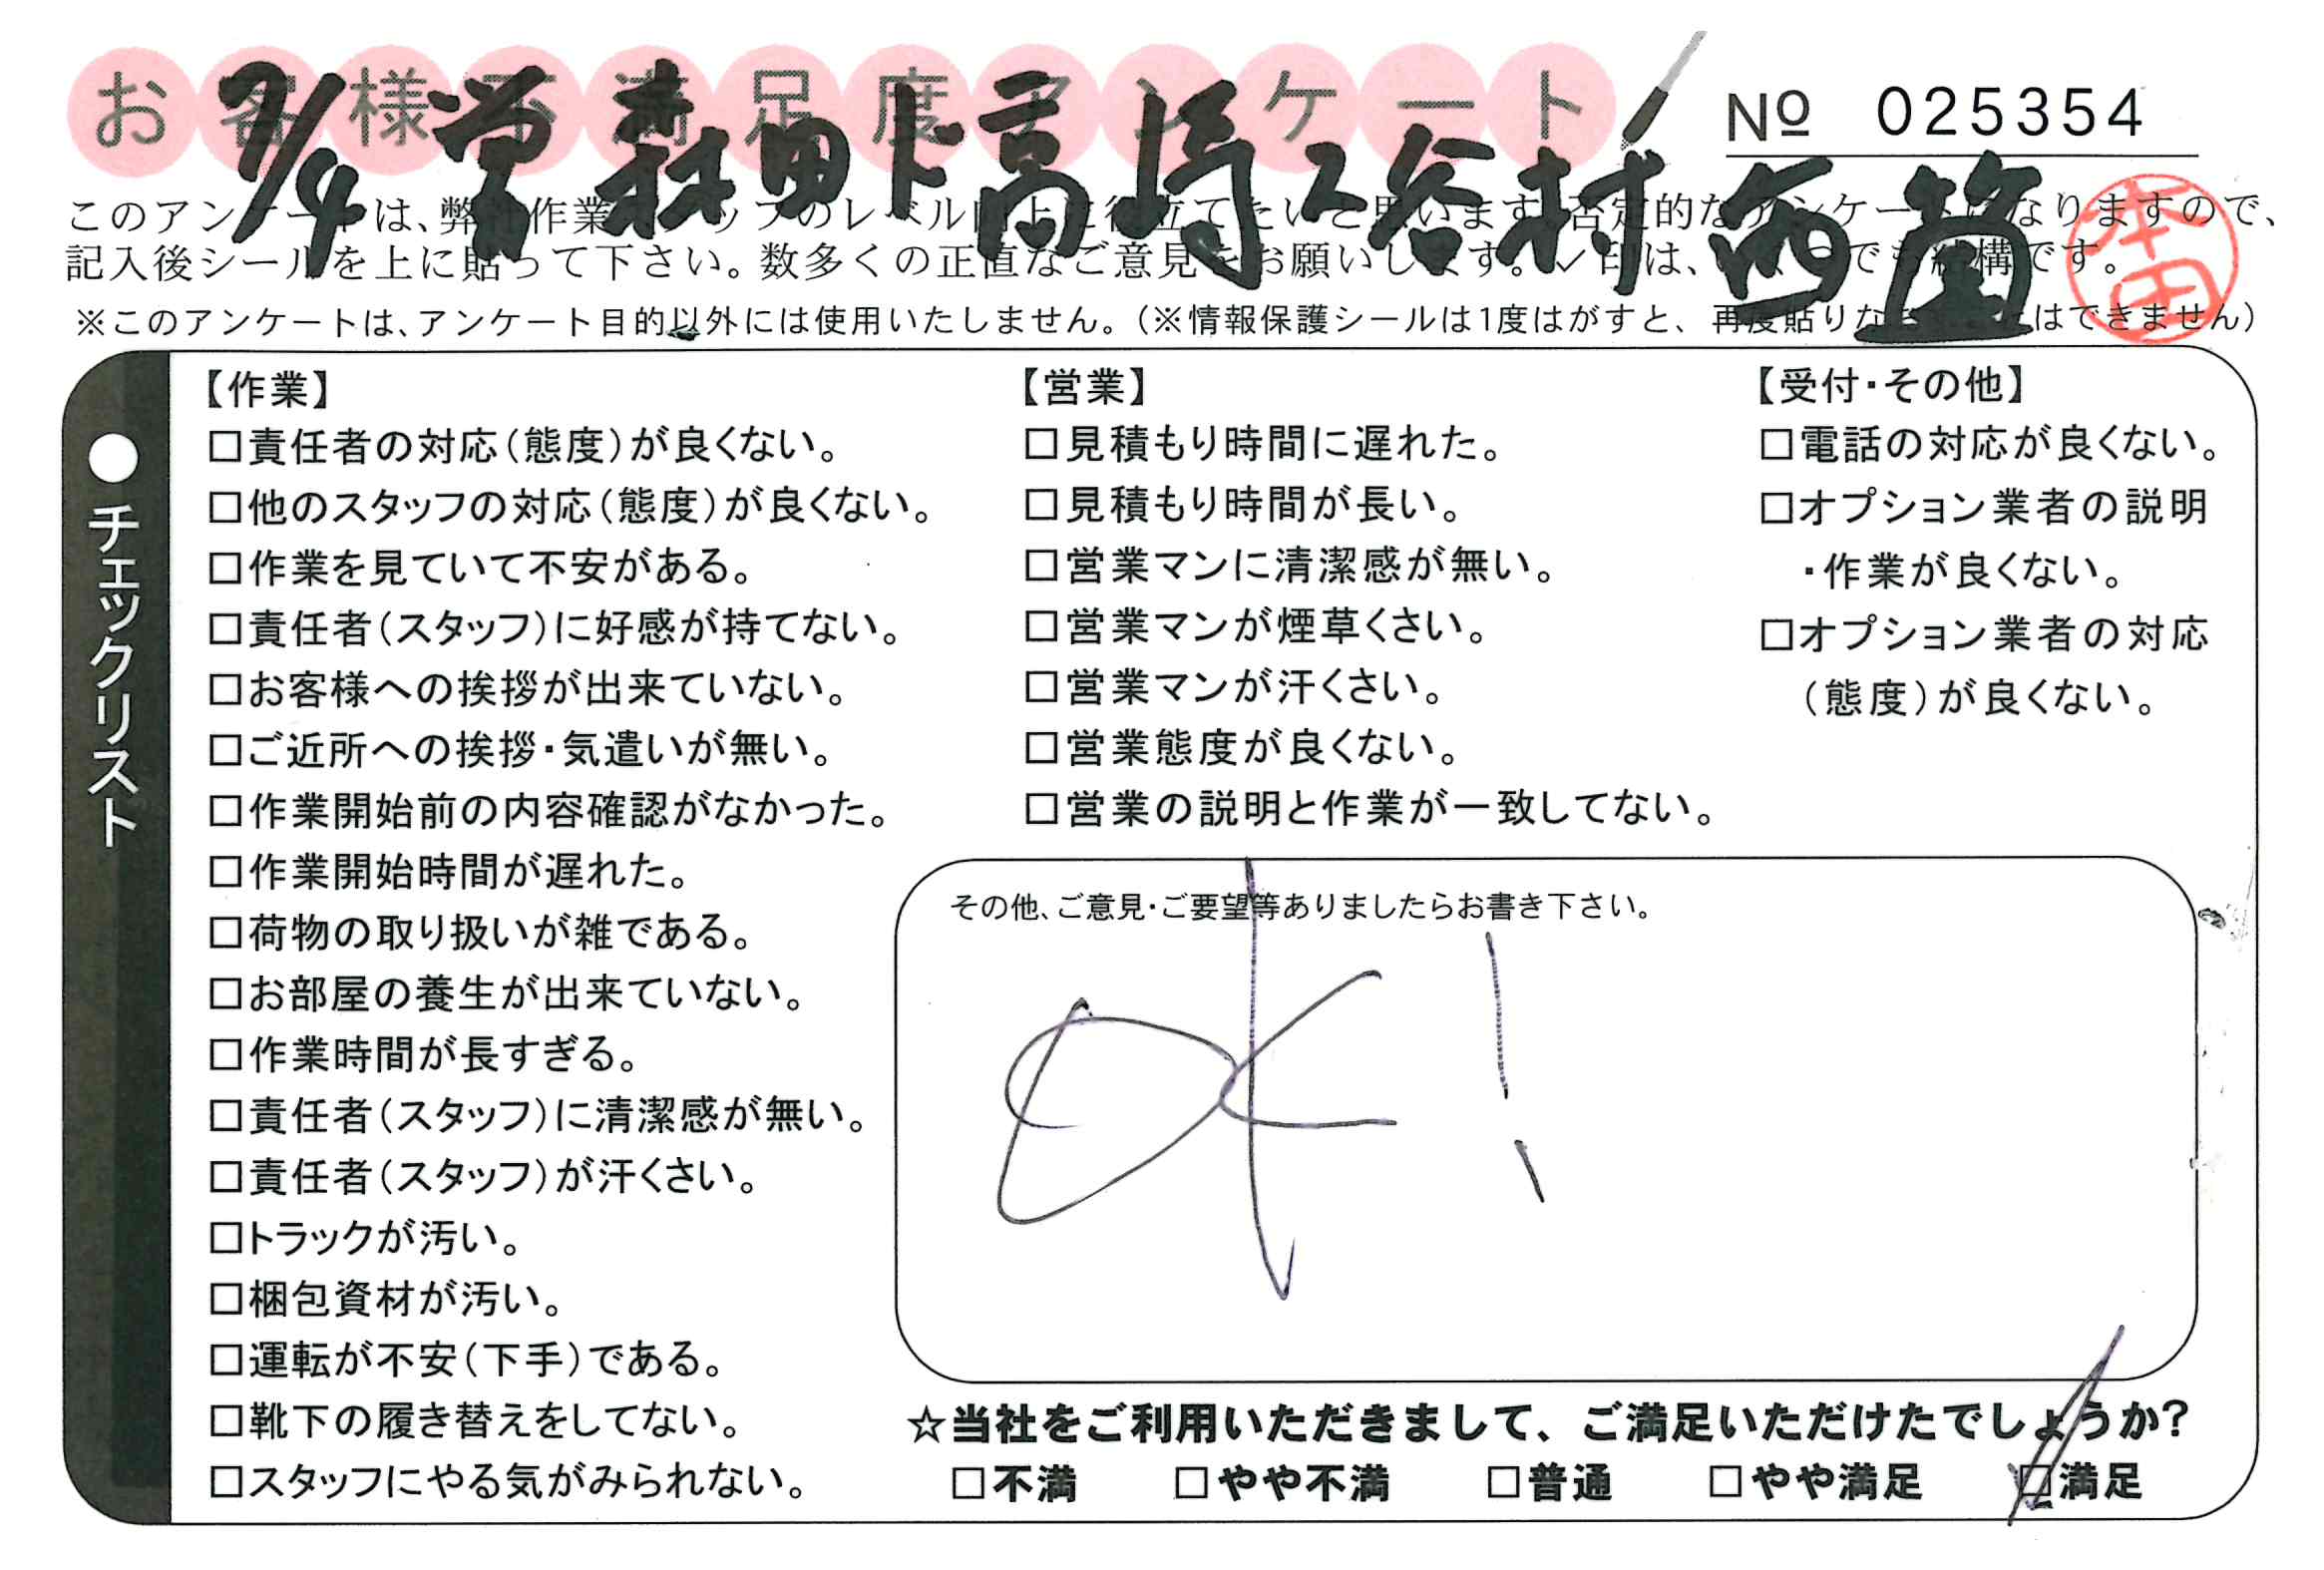 お客様不満足度アンケート
№ 025354
7/4 営 森 田 ド高 崎 工谷村 西 箇
本田
このアンケートは、弊社作業スタッフのレベル向上に役立てたいと思います。否定的なアンケートになりますので、
記入後シールを上に貼って下さい。数多くの正直なご意見をお願いします。✓印は、いくつでも結構です。
※このアンケートは、アンケート目的以外には使用いたしません。(※情報保護シールは1度はがすと、再度貼りなおすことはできません)
●チェックリスト
【作業】
□責任者の対応(態度)が良くない。
□他のスタッフの対応(態度)が良くない。
□作業を見ていて不安がある。
□責任者(スタッフ)に好感が持てない。
□お客様への挨拶が出来ていない。
□ご近所への挨拶・気遣いが無い。
□作業開始前の内容確認がなかった。
□作業開始時間が遅れた。
□荷物の取り扱いが雑である。
□お部屋の養生が出来ていない。
□作業時間が長すぎる。
□責任者(スタッフ)に清潔感が無い。
□責任者(スタッフ)が汗くさい。
□トラックが汚い。
□梱包資材が汚い。
□運転が不安(下手)である。
□靴下の履き替えをしてない。
□スタッフにやる気がみられない。
【営業】
□見積もり時間に遅れた。
□見積もり時間が長い。
□営業マンに清潔感が無い。
□営業マンが煙草くさい。
□営業マンが汗くさい。
□営業態度が良くない。
□営業の説明と作業が一致してない。
【受付・その他】
□電話の対応が良くない。
□オプション業者の説明
・作業が良くない。
□オプション業者の対応
(態度)が良くない。
その他、ご意見・ご要望等ありましたらお書き下さい。
OK!
☆当社をご利用いただきまして、ご満足いただけたでしょうか?
□不満 □やや不満 □普通 □やや満足 ☑満足